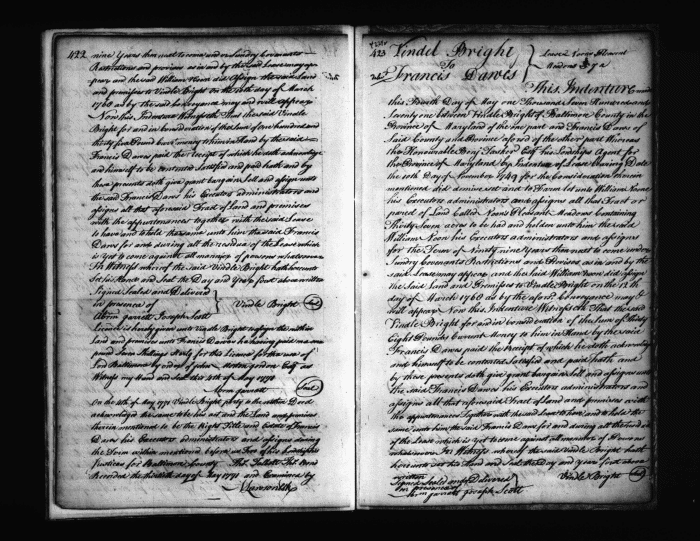 422
nine Years then next to come and on Sundry Covenants
Restrictions and provisoes as in and by the said Lease may ap
pear and the said William Noon did Assign the said Land
and premises to Vindle Bright on the 12th day of March
1760 as by the said Conveyance may and will appear
Now this Indenture Witnesseth That the said Vindle
Bright for and in Consideration of the Sum of One hundred and
thirty five Pounds Curt money to him in Hand by the said
Francis Dawes paid the receipt of which he doth acknowledge
and himself to be contented Satisfied and paid hath and by
these presents doth give grant bargain sell and assign unto
the said Francis Dawes his Executors administrators and
assigns all that aforesaid Tract of Land and premises
with the appurtenances together with the said Lease
to have and to hold the same unto him the said Francis
Dawes for and during all the residue of the Lease which
is yet to come against all manner of persons whatsoever
In Witness whereof the said Vindle Bright hath hereunto
Set his Hand and Seal the Day and Year first above written
Signed Sealed and Delivered
in presence of
Abrm garrett Joseph Scott
Vindle Bright Seal
License is hereby given unto Vindle Bright to assign the within
Land and premises unto Francis Dawes he having paid me
Seven Shillings Sterlg for the License for the use of
Lord Baltimore by order of
Witness my Hand and Seal this 9th of May 1771
Seal
On the 4th of May 1771 Vindle Bright party to the within Deed
acknowledged the same to be his act and the Land and premises
therein mentioned to be the Right Title and Estate of Francis
Dawes his Executors administrators and assigns during
the Term within mentioned before us Two of his Lordships
Justices for Baltimore County
Recorded the thirtieth day of May 1771 and Examined by
423
Vindel Bright
To
Francis Dawes
Lease Noons Pleasant
Meadows 37 a
This Indenture made
this Fourth Day of May one Thousand Seven Hundred and
Seventy one between Vindle Bright of Baltimore County in the
Province of Maryland of the one part and Francis Dawes of
Said County and Province of the other part Whereas
the Honourable Benj Tasker Esq his Lordships Agent for
the Province of Maryland by Indenture of Lease bearing Date
the 10th Day of November 1749 for the Consideration therein
mentioned did demise set and to Farm let unto William Noone
his Executors administrators and assigns all that Tract or
parcel of Land Called Noons Pleasant Meadows Containing
Thirty Seven acres to be had and holden unto him the said
William Noon his Executors administrators and assigns
for the Term of Ninety nine Years then next to come under
Sundry Covenants Restrictions and Provisoes as in and by the
said Lease may appear and the said William Noon did assign
the Said Land and Premises to Vindle Bright on the 12th
day of March 1760 as by the aforsd Conveyance may &
will appear Now this Indenture Witnesseth That the said
Vindle Bright for and in Consideration of the Sum of Thirty
Eight Pounds Current Money to him in Hand by the said
Francis Dawes paid the receipt of which he doth acknowledge
and himself to be contented Satisfied and paid hath and
by these presents doth give grant bargain sell and assign unto
the said Francis Dawes his Executors administrators and
assigns all that aforesaid Tract of Land and premises with
the appurtenances Together with the said Lease to have and to hold the
same unto him the said Francis Dawes for and during all the residue
of the Lease which is yet to come against all manner of Persons
whatsoever In Witness whereof the said Vindle Bright hath
hereunto set his Hand and Seal the Day and Year first above
written
Signed Sealed and Delivered
in presence of
Abrm garrett Joseph Scott
Vindle Bright Seal